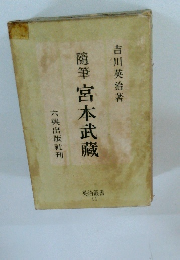 吉川英治著
隨筆 宮本武藏
六興出版社刊